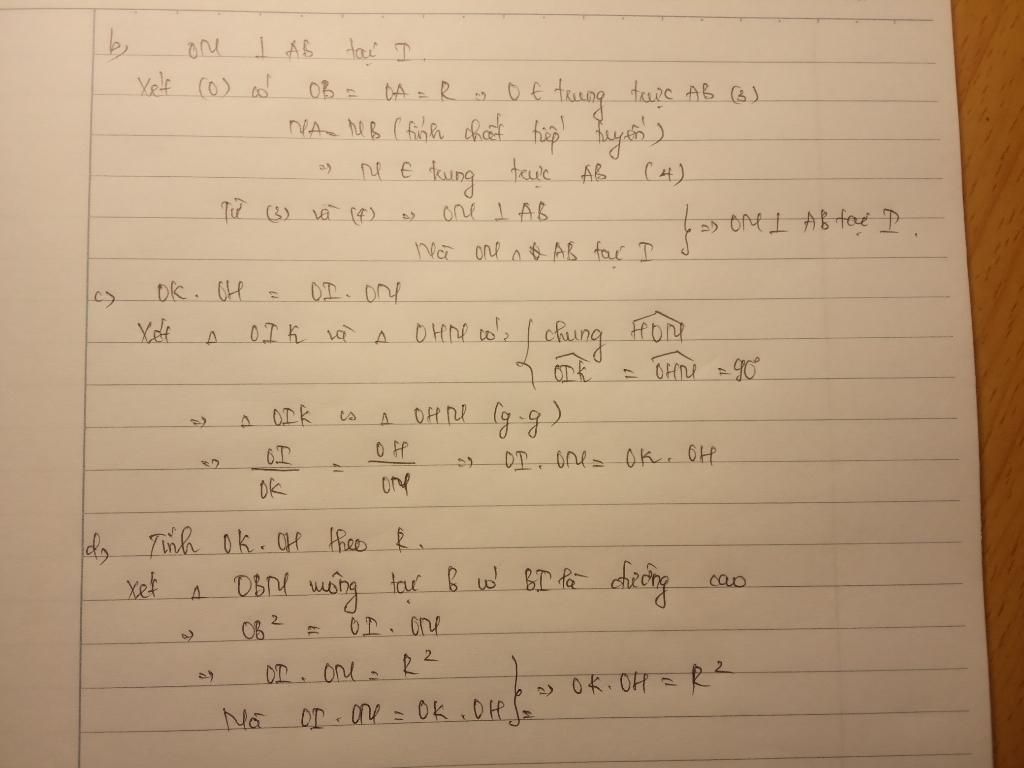 b, OM ⊥ AB tại I.
Xét (O) có OB = OA = R => O ∈ trung trực AB (3)
MA = MB (tính chất tiếp tuyến)
=> M ∈ trung trực AB (4)
Từ (3) và (4) => OM ⊥ AB
Mà OM ∩ AB tại I } => OM ⊥ AB tại I.
c, OK . OH = OI . OM
Xét Δ OIK và Δ OHM có: { chung \widehat{HOM}
\widehat{OIK} = \widehat{OHM} = 90°
=> Δ OIK ∽ Δ OHM (g.g)
=> OI/OK = OH/OM => OI . OM = OK . OH
d, Tính OK . OH theo R.
Xét Δ OBM vuông tại B có BI là đường cao
=> OB² = OI . OM
=> OI . OM = R²
Mà OI . OM = OK . OH } => OK . OH = R²